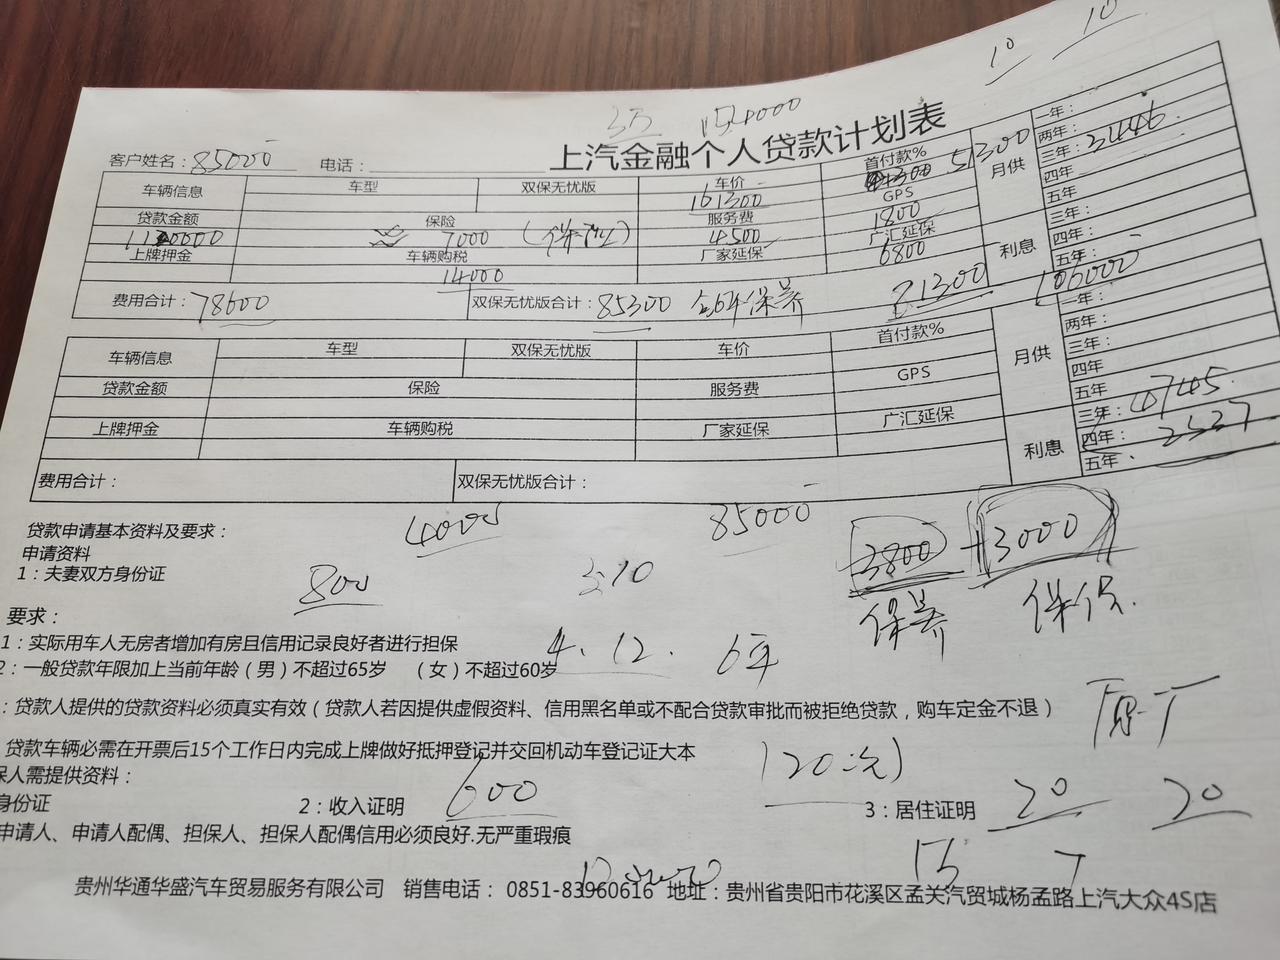 10 10
3万 154000
上汽金融个人贷款计划表
客户姓名：85000 电话：
车辆信息 车型 双保无忧版 车价 首付款% 51300 月供 一年：
161300 两年：
贷款金额 保险 服务费 GPS 三年：3446
110000 7000 4500 1800 四年
上牌押金 车辆购税 厂家延保 广汇延保 五年
14000 6800 利息 三年：
四年：
费用合计：78600 双保无忧版合计：85300 6年保养 81300 五年：106000
车辆信息 车型 双保无忧版 车价 首付款% 月供 一年：
两年：
贷款金额 保险 服务费 GPS 三年：
四年
上牌押金 车辆购税 厂家延保 广汇延保 五年
利息 三年：4745
四年：2527
费用合计： 双保无忧版合计： 五年：
贷款申请基本资料及要求： 4000 85000 3800 +3000
申请资料
1：夫妻双方身份证 800 3.10 保养
要求：
1：实际用车人无房者增加有房且信用记录良好者进行担保
2：一般贷款年限加上当前年龄（男）不超过65岁 （女）不超过60岁 4.12. 6年
：贷款人提供的贷款资料必须真实有效（贷款人若因提供虚假资料、信用黑名单或不配合贷款审批而被拒绝贷款，购车定金不退）
贷款车辆必需在开票后15个工作日内完成上牌做好抵押登记并交回机动车登记证大本 120
保人需提供资料：
身份证 2：收入证明 600 3：居住证明 20 20
申请人、申请人配偶、担保人、担保人配偶信用必须良好.无严重瑕疵
15
贵州华通华盛汽车贸易服务有限公司 销售电话： 0851-83960616 地址：贵州省贵阳市花溪区孟关汽贸城杨孟路上汽大众4S店